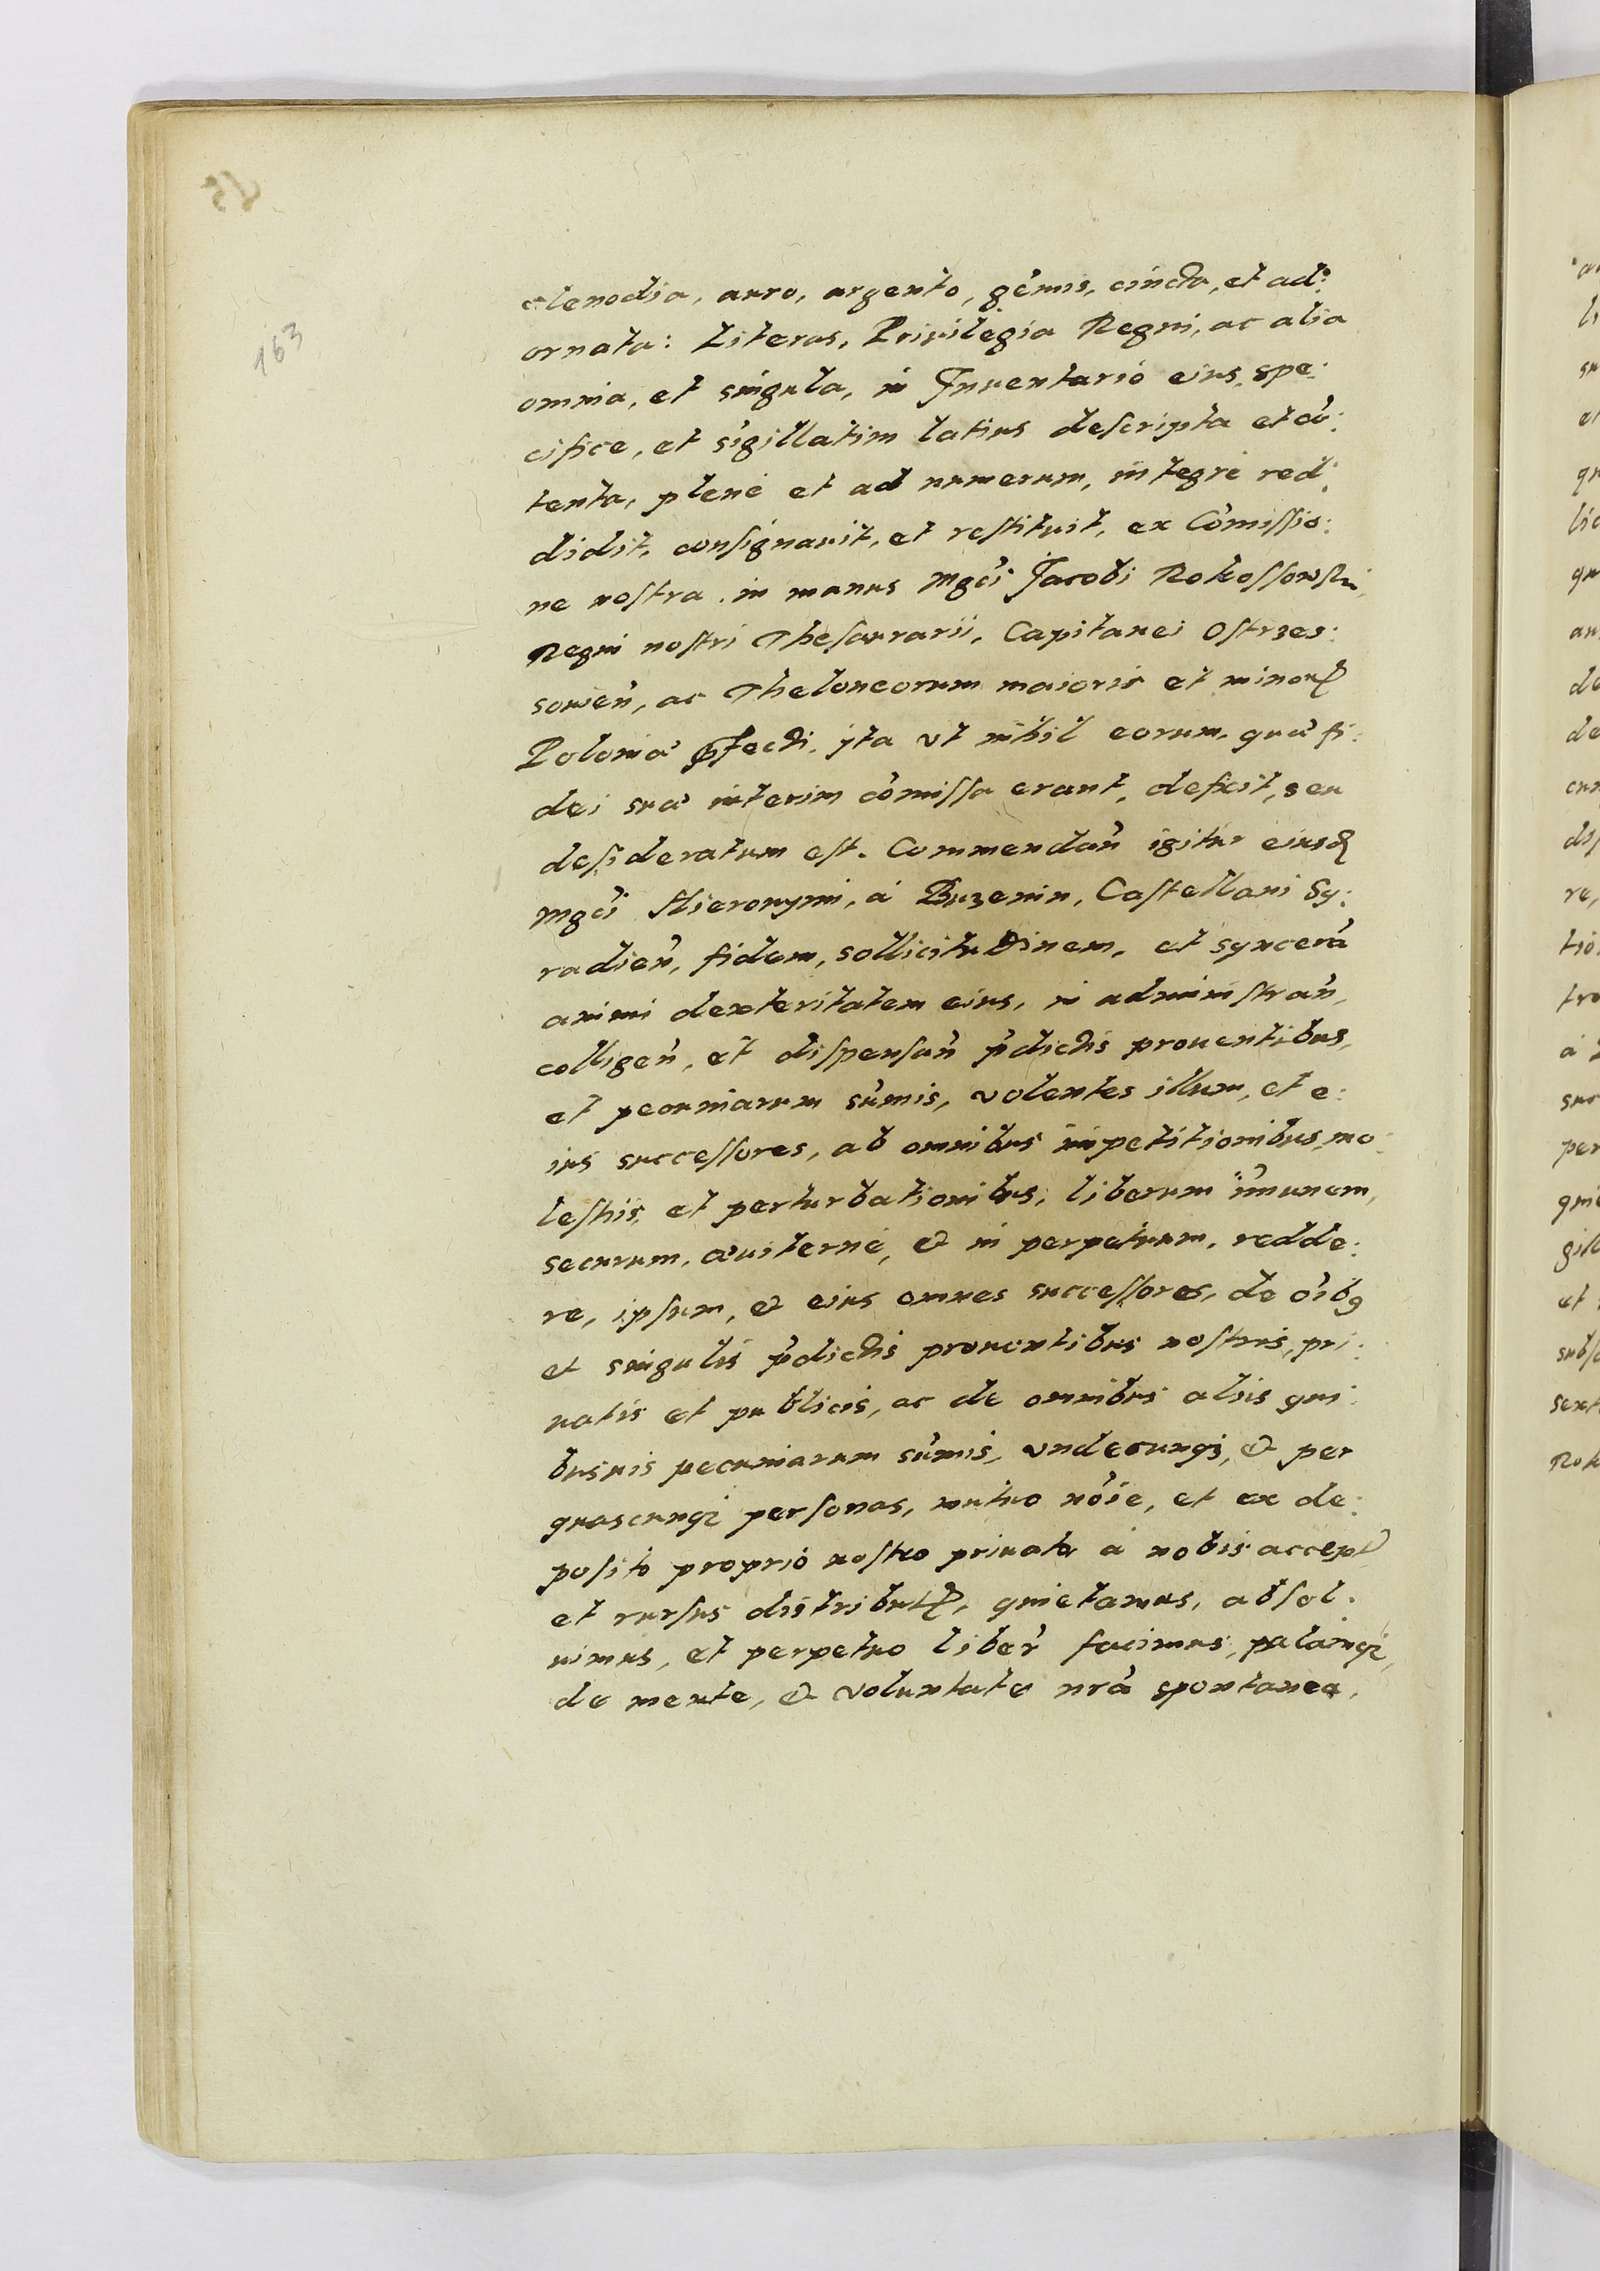 163
clenodia, auro, argento, gem̄is, cincta, et ad:
ornata: Literas, Priuilegia Regni, ac alia
omnia, et singula, in Inuentario eius, spe:
cifice, et sigillatim latius descripta et cō:
tenta, plenè et ad numerum, integrè red:
didit, consignauit, et restituit, ex Com̄issio:
ne nostra in manus Mgci Jacobi Rokossowski
Regni nostri Thesaurarii, Capitanei Ostrzes:
souien̄, ac Theloneorum maioris et minorꝭ
Polonia p̄fecti, yta vt nihil eorum, qua fi:
dei sua interim com̄issa erant, deficit, seu
desideratum est. Commendan̄ igitur eiusd̄
Mgci Hieronymi, à Buzenin, Castellani Sy:
radien̄, fidem, sollicitudinem, et syncerā
animi dexteritatem eius, in administran̄,
colligen̄, et dispensan̄ p̄dictis prouentibus,
et pecuniarum sum̄is, volentes illum, et e:
ius successores, ab omnibus impetitionibus, mo:
lestiis, et perturbationibus, liberum im̄unem,
securum, æuiternè, & in perpetuum, redde:
re, ipsum, & eius omnes successores, de oībꝰ
et singulis p̄dictis prouentibus nostris, pri:
uatis et publicis, ac de omnibus aliis qui:
busuis pecuniarum sum̄is, vndecunqȝ, & per
quascunqȝ personas, mutuo noīe, et ex de:
posito proprio nostro priuato à nobis acceptꝭ
et rursus distributꝭ, quietamus, absol:
uimus, et perpetuo liber̄ facimus, palamqȝ,
de mente, & voluntate nrā spontanea,